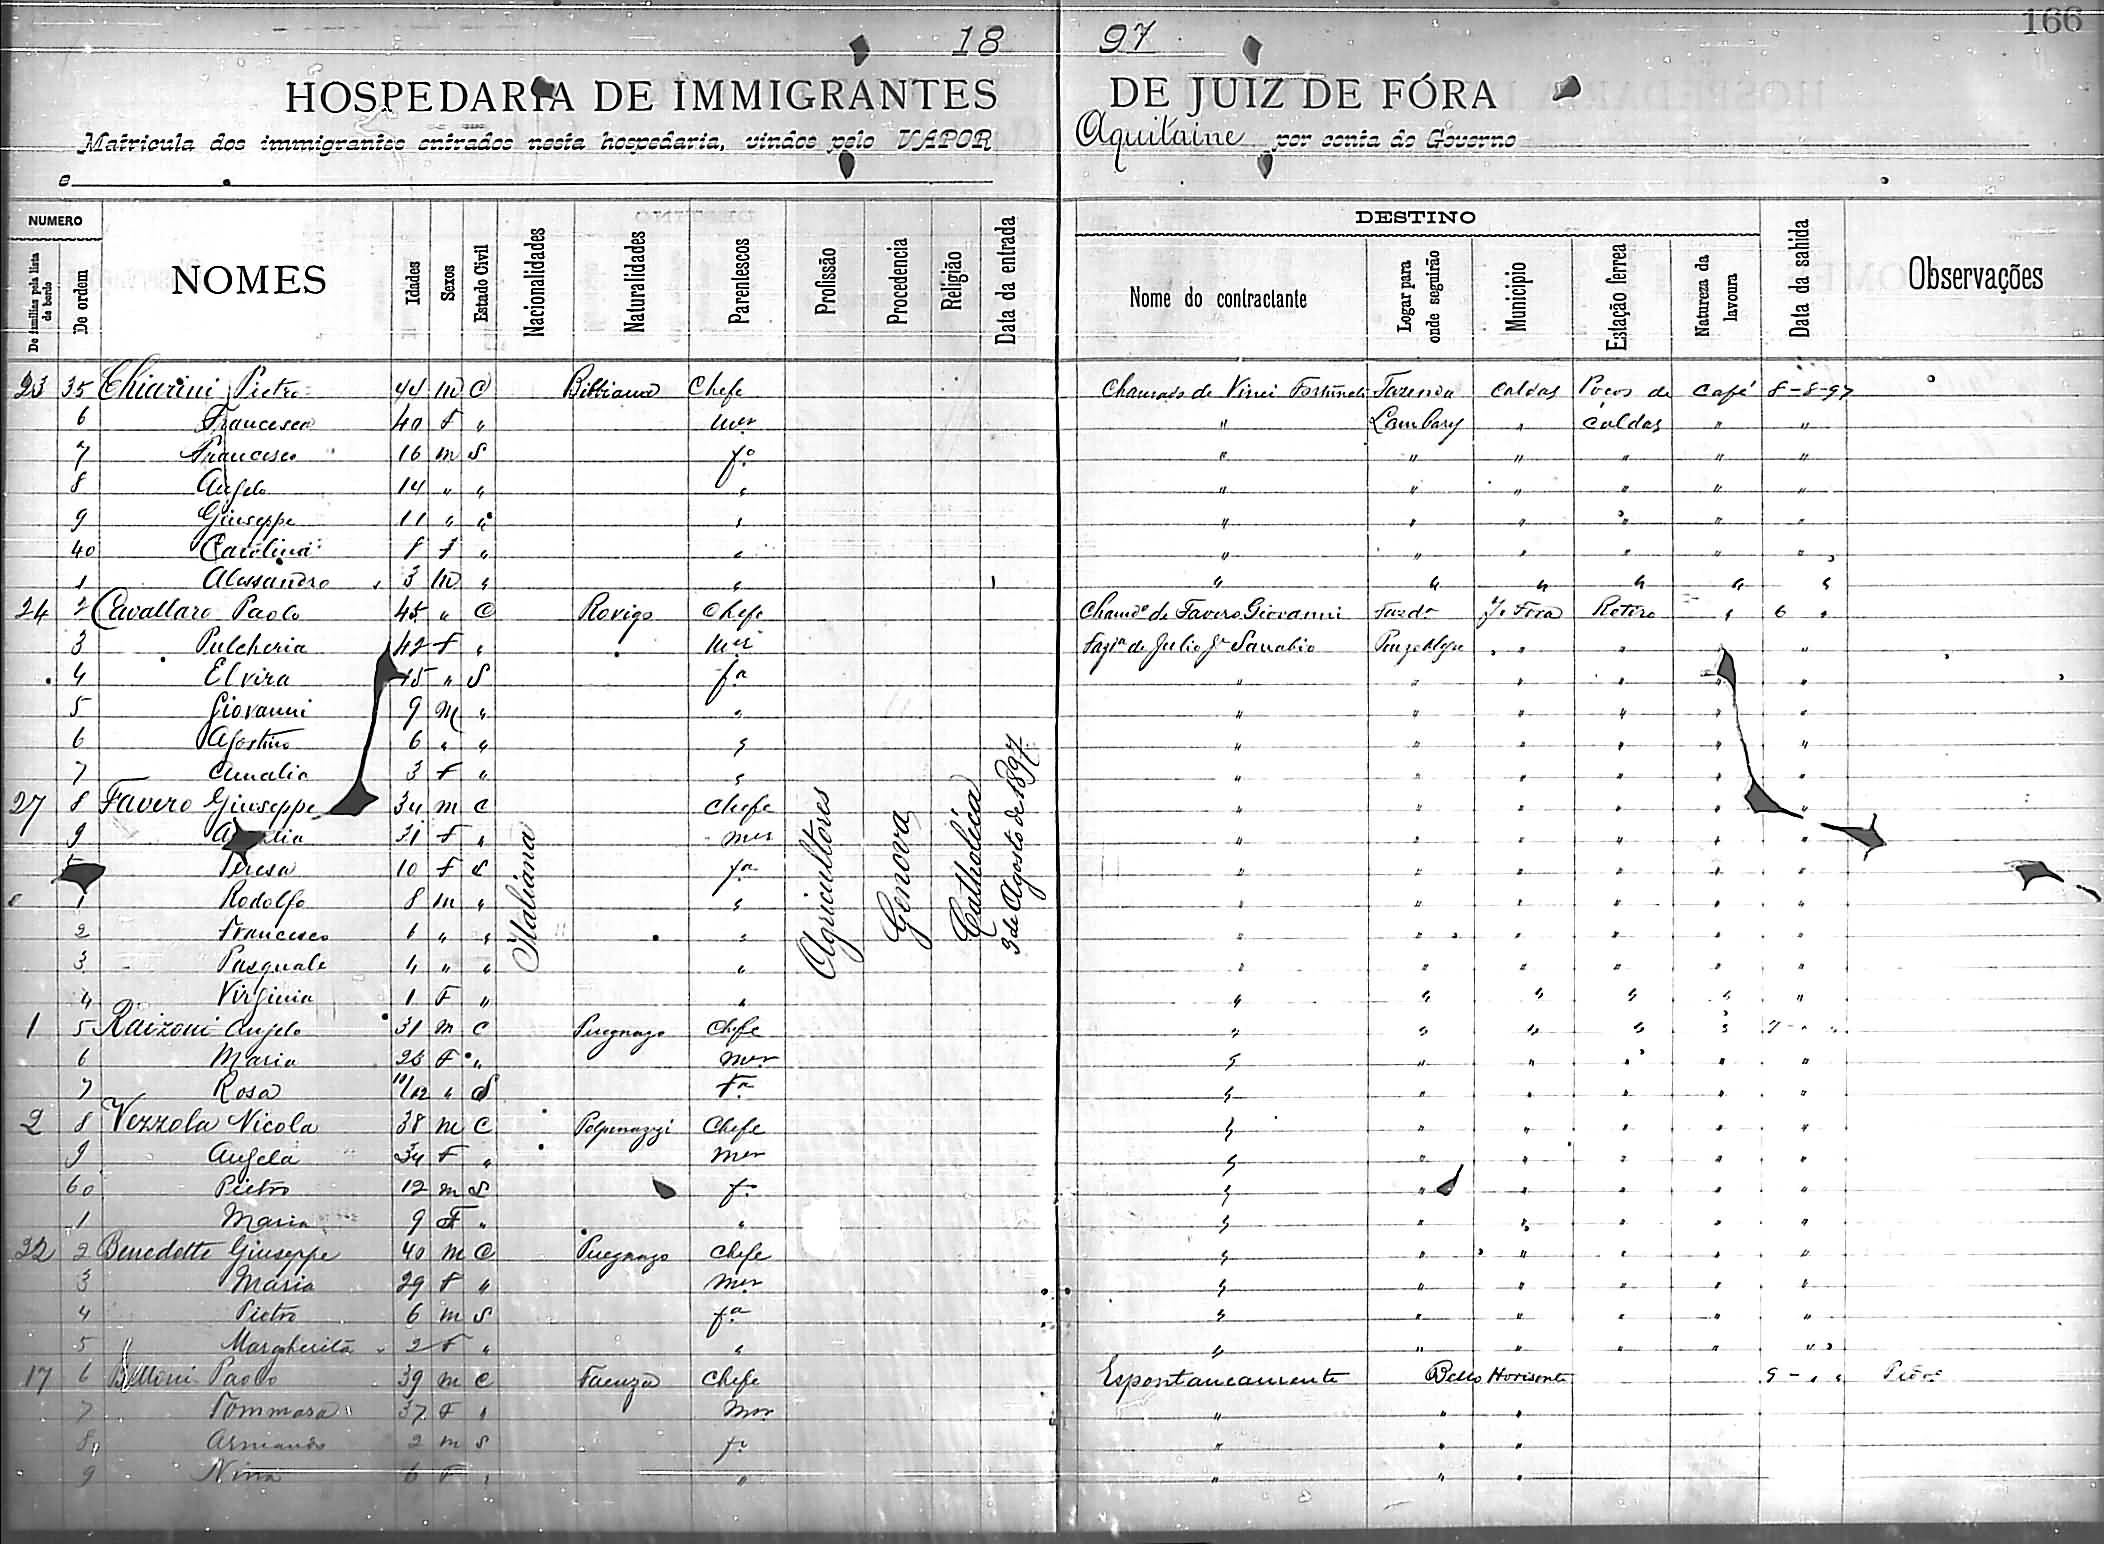 166
18 97
HOSPEDARIA DE IMMIGRANTES DE JUIZ DE FÓRA
Matricula dos immigrantes entrados nesta hospedaria, vindos pelo VAPOR Aquitaine por conta do Governo
e
NUMERO
De familias pela lista de bordo
De ordem
NOMES
Idades
Sexos
Estado Civil
Nacionalidades
Naturalidades
Parentescos
Profissão
Procedencia
Religião
Data da entrada
DESTINO
Nome do contractante
Logar para onde seguirão
Municipio
Estação ferrea
Natureza da lavoura
Data da sahida
Observações
Italiana
Agricultores
Genova
Catholica
3 de Agosto de 1897
23 35 Chiarini Pietro 44 m C Bibbiana Chefe Chamado de Vinci Fazenda Caldas Poços de Café 8-8-97
6 Francesca 40 F " mer " Lambary " Caldas " "
7 Francesco 16 m S fo " " " " " "
8 Angelo 14 " " " " " " " " "
9 Giuseppe 11 " " " " " " " " "
40 Carolina 8 f " " " " " " " "
1 Alessandro 3 m " " " " " " " "
24 2 Cavallaro Paolo 45 " C Rovigo Chefe Chamdo de Favero Giovanni Fazda Jz Fora Retiro " 6 "
3 Pulcheria 42 F " mer de Julio " " "
4 Elvira 15 " S fa " " " " " "
5 Giovanni 9 m " " " " " " " "
6 Agostino 6 " " " " " " " " "
7 Amalia 3 F " " " " " " " "
27 8 Favero Giuseppe 34 m C Chefe " " " " "
9 31 F " mer " " " " "
Teresa 10 F S fa " " " " "
1 Rodolfo 8 m " " " " " " " "
2 Francesco 6 " " " " " " " " "
3 Pasquale 4 " " " " " " " " "
4 Virginia 1 F " " " " " " " "
1 5 Raizoni Angelo 31 m C Puegnago Chefe " " " " " 7 - " "
6 Maria 26 F " mer " " " " " "
7 Rosa 10/12 " S Fa " " " " " "
2 8 Vezzola Nicola 38 m C Polpenazzi Chefe " " " " " "
9 Angela 34 F " mer " " " " " "
60 Pietro 12 m S fo " " " " " "
1 Maria 9 F " " " " " " " "
32 2 Benedette Giuseppe 40 m C Puegnago Chefe " " " " " "
3 Maria 29 F " mer " " " " " "
4 Pietro 6 m S fa " " " " " "
5 Margherita 2 F " " " " " " " "
17 6 Paolo 39 m C Faenza Chefe Espontaneamente Bello Horisonte 5 - " "
7 Tommasa 37 F " mer " " "
8 Armando 2 m S fo " " "
9 Nina 6 F " " " " "